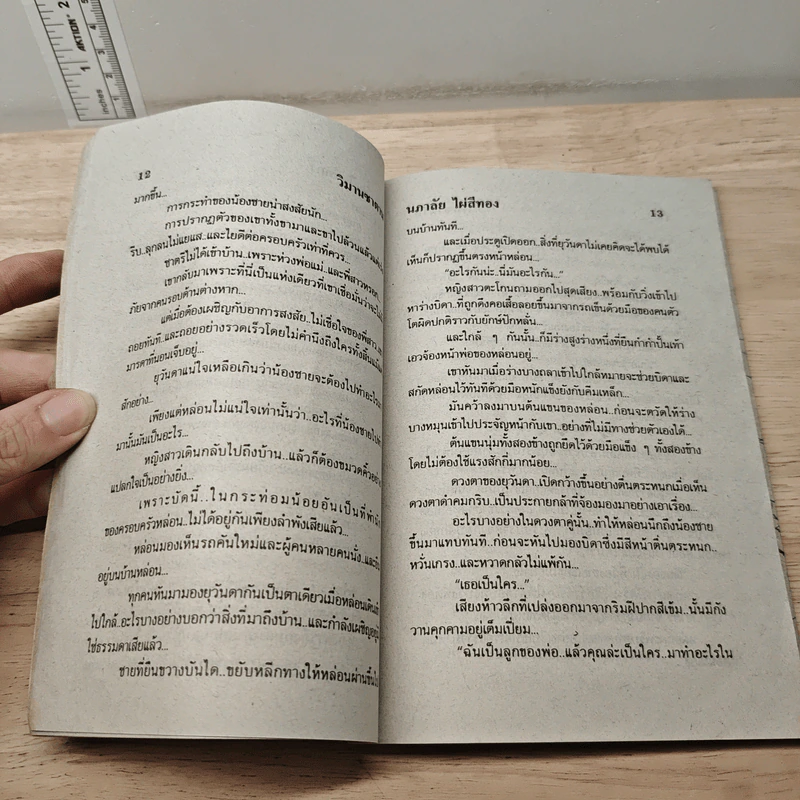 AKTION
inches 1 2
12
วิมานซาตาน
มากขึ้น...
การกระทำของน้องชายน่าสงสัยนัก...
การปรากฏตัวของเขาทั้งขามาและขาไปล้วนแล้วแต่
รีบ..ลุกลนไม่แยแส..และไยดีต่อครอบครัวเท่าที่ควร..
ชาตรีไม่ได้เข้าบ้าน..เพราะห่วงพ่อแม่..และพี่สาวหรอก..
เขากลับมาเพราะที่นี่เป็นแห่งเดียวที่เขาเชื่อมั่นว่าจะ
ภัยจากคนรอบด้านต่างหาก...
แต่เมื่อต้องเผชิญกับอาการสงสัย..ไม่เชื่อใจของพี่สาว..
ถอยทันที..และถอยอย่างรวดเร็วโดยไม่คำนึงถึงใครทั้งสิ้น
มารดาที่นอนเจ็บอยู่...
ยุวันดาแน่ใจเหลือเกินว่าน้องชายจะต้องไปทำอะไร
สักอย่าง...
เพียงแต่หล่อนไม่แน่ใจเท่านั้นว่า..อะไรที่น้องชาย
มานั้นมันเป็นอะไร...
หญิงสาวเดินกลับไปถึงบ้าน..แล้วก็ต้องขมวดคิ้ว
แปลกใจเป็นอย่างยิ่ง...
เพราะบัดนี้..ในกระท่อมน้อยอันเป็นที่
ของครอบครัวหล่อน..ไม่ได้อยู่กันเพียงลำพังเสียแล้ว...
หล่อนมองเห็นรถคันใหม่และผู้คนหลายคนนั่ง..และยืน
อยู่บนบ้านหล่อน...
ทุกคนหันมามองยุวันดากันเป็นตาเดียวเมื่อหล่อนเดิน
ไปใกล้..อะไรบางอย่างบอกว่าสิ่งที่มาถึงบ้าน..และกำลังเผชิญอยู่
ใช่ธรรมดาเสียแล้ว...
ชายที่ยืนขวางบันได..ขยับหลีกทางให้หล่อนผ่านขึ้นไป
นภาลัย ไผ่สีทอง
13
บนบ้านทันที...
และเมื่อประตูเปิดออก..สิ่งที่ยุวันดาไม่เคยคิดจะได้พบได้
เห็นก็ปรากฏขึ้นตรงหน้าหล่อน...
“อะไรกันน่ะ..นี่มันอะไรกัน...”
หญิงสาวตะโกนถามออกไปสุดเสียง..พร้อมกับวิ่งเข้าไป
หาร่างบิดา..ที่ถูกดึงคอเสื้อลอยขึ้นมาจากรถเข็นด้วยมือของคนตัว
โตผิดปกติราวกับยักษ์ปักหลั่น...
และใกล้ ๆ กันนั้น..ก็มีร่างสูงร่างหนึ่งที่ยืนกำกำปั้นเท้า
เอวจ้องหน้าพ่อของหล่อนอยู่...
เขาหันมาเมื่อร่างบางถลาเข้าไปใกล้หมายจะช่วยบิดาและ
สกัดหล่อนไว้ทันทีด้วยมือหนักแข็งยังกับคีมเหล็ก...
มันคว้าลงมาบนต้นแขนของหล่อน..ก่อนจะตวัดให้ร่าง
บางหมุนเข้าไปประจัญหน้ากับเขา..อย่างที่ไม่มีทางช่วยตัวเองได้...
ต้นแขนนุ่มทั้งสองข้างถูกยึดไว้ด้วยมือแข็ง ๆ ทั้งสองข้าง
โดยไม่ต้องใช้แรงสักกี่มากน้อย...
ดวงตาของยุวันดา..เปิดกว้างขึ้นอย่างตื่นตระหนกเมื่อเห็น
ดวงตาดำคมกริบ..เป็นประกายกล้าที่จ้องมองมาอย่างเอาเรื่อง...
อะไรบางอย่างในดวงตาคู่นั้น..ทำให้หล่อนนึกถึงน้องชาย
ขึ้นมาแทบทันที..ก่อนจะหันไปมองบิดาซึ่งมีสีหน้าตื่นตระหนก..
หวั่นเกรง..และหวาดกลัวไม่แพ้กัน...
“เธอเป็นใคร...”
เสียงห้าวลึกที่เปล่งออกมาจากริมฝีปากสีเข้ม..นั้นมีกัง
วานคุกคามอยู่เต็มเปี่ยม...
“ฉันเป็นลูกของพ่อ..แล้วคุณล่ะเป็นใคร..มาทำอะไรใน